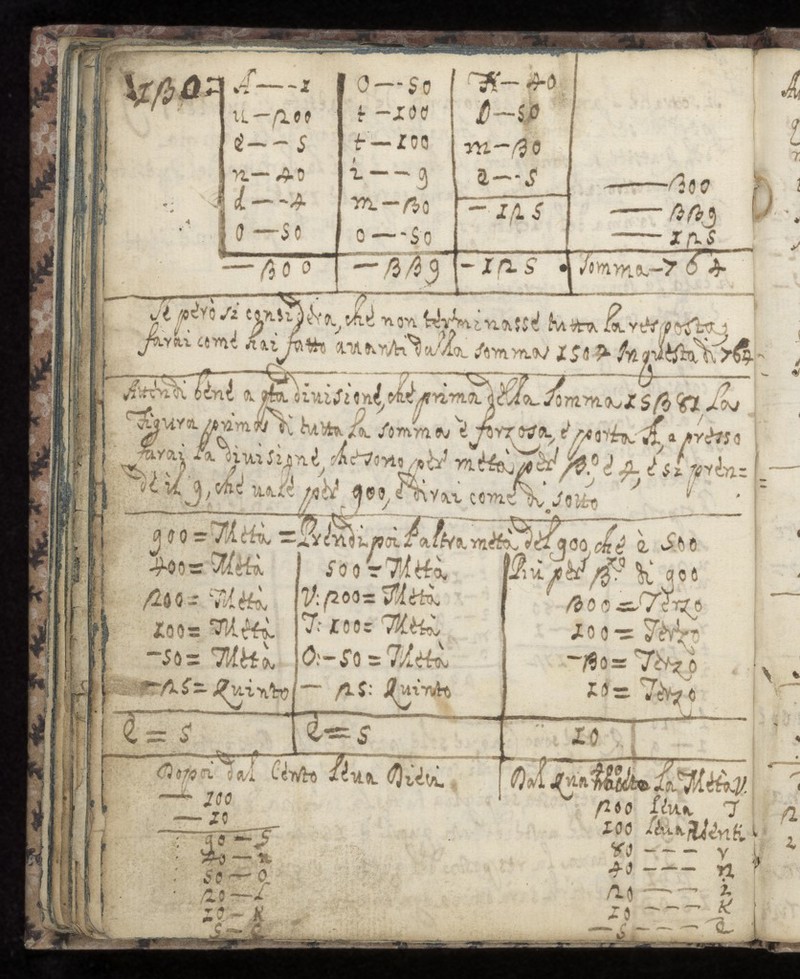 1130= A--1 | O--50 | K-40
u-200 | t-100 | O-50
e--5 | t-100 | m-30
n-40 | i--9 | e--5
d--4 | m-30 | -125 | -300
O-50 | O--50 | -339
-125
-300 | -339 | -125 . Somma-764
Se però si considera, che non terminasse tutta la resposta,
farai come hai fatto avanti dalla somma 1504 In questa di 764
Attendi bene a qta divisione, che prima della Somma 15381, La
Figura prima di tutta la somma è forzosa, e porta A, a presso
farai la divisione, che sono per metà per 3.o e 4, e si pren=
de il 9, che vale per 900, e dirai come di sotto
900= Metà =Prendi poi l'altra metà del 900, che è 500
400= Metà | 500= Metà | Più per 3.o di 900
200= Metà | V: 200= Metà | 300= Terzo
100= Metà | T: 100= Metà | 100= Terzo
-50= Metà | O:-50= Metà | -30= Terzo
-25= Quinto | -25: Quinto | 10= Terzo
E= 5 | E= 5 | 10
Doppoi dal Cento leva Dieci
-100
-10
90-S
40-n
50-O
20-L
10-K
5-E
Dal La Metà V.
200 leva T
100 leva Venti
80---Y
40---n
20---L
10---K
-5---E